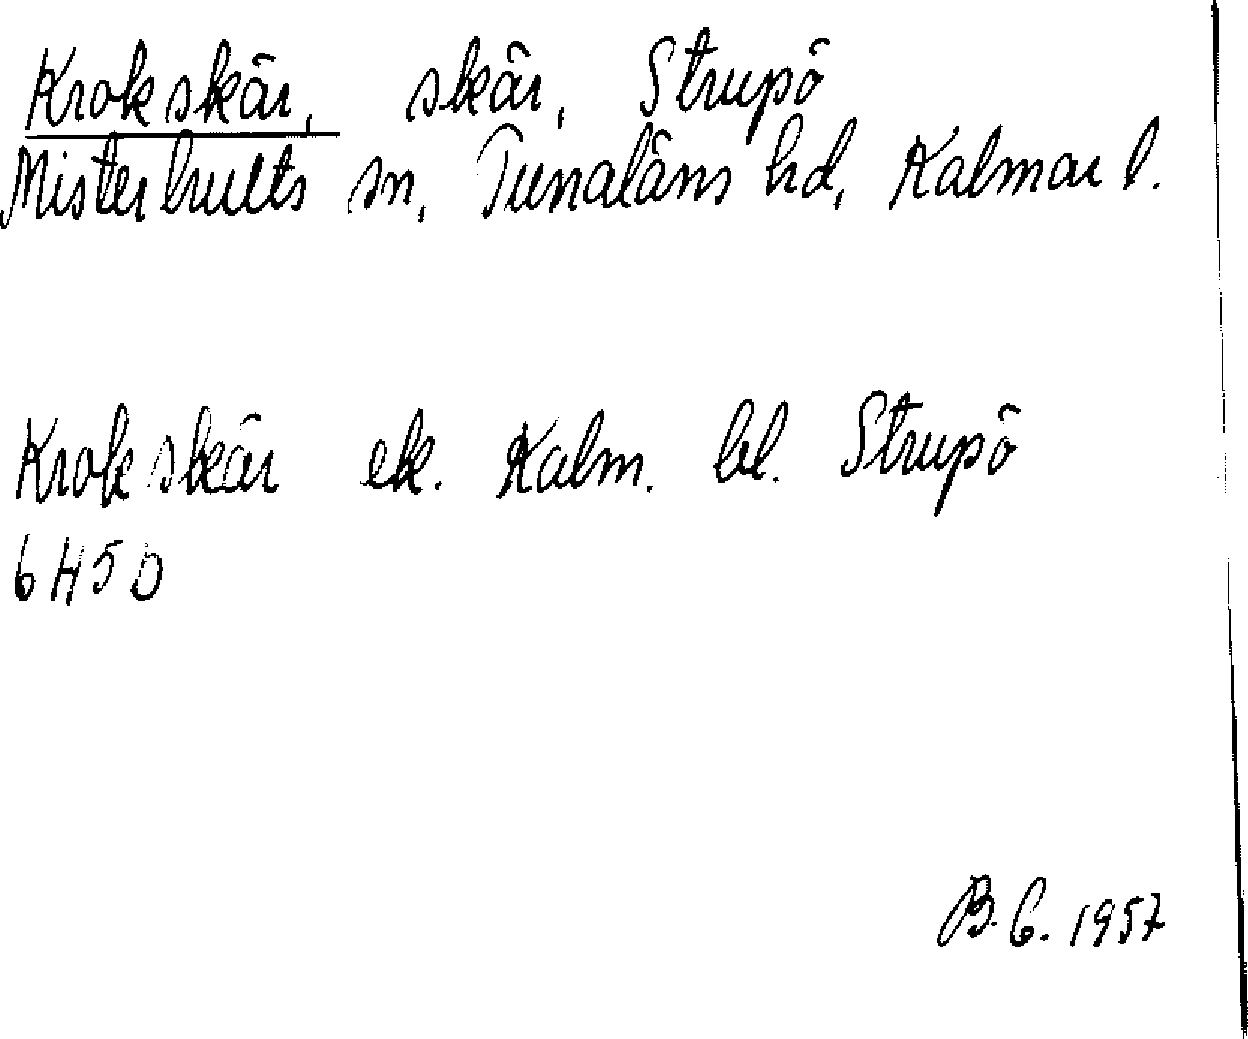 Krokskär, skär, Strupö
Misterhults sn, Tunaläns hd, Kalmar l.
Krokskär ek. Kalm. bl. Strupö
6H5D
B.G. 1957